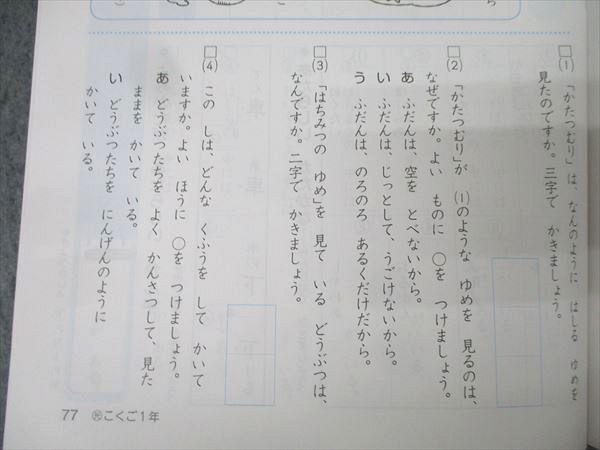 (1) 「かたつむり」は、なんのように はしる ゆめを
見たのですか。三字で かきましょう。
(2) 「かたつむり」が (1)のような ゆめを 見るのは、
なぜですか。よい ものに ○を つけましょう。
あ ふだんは、空を とべないから。
い ふだんは、じっとして、うごけないから。
う ふだんは、のろのろ あるくだけだから。
(3) 「はちみつの ゆめ」を 見て いる どうぶつは、
なんですか。二字で かきましょう。
(4) この しは、どんな くふうを して かいて
いますか。よい ほうに ○を つけましょう。
あ どうぶつたちを よく かんさつして、見た
ままを かいて いる。
い どうぶつたちを にんげんのように
かいて いる。
77 こくご1年